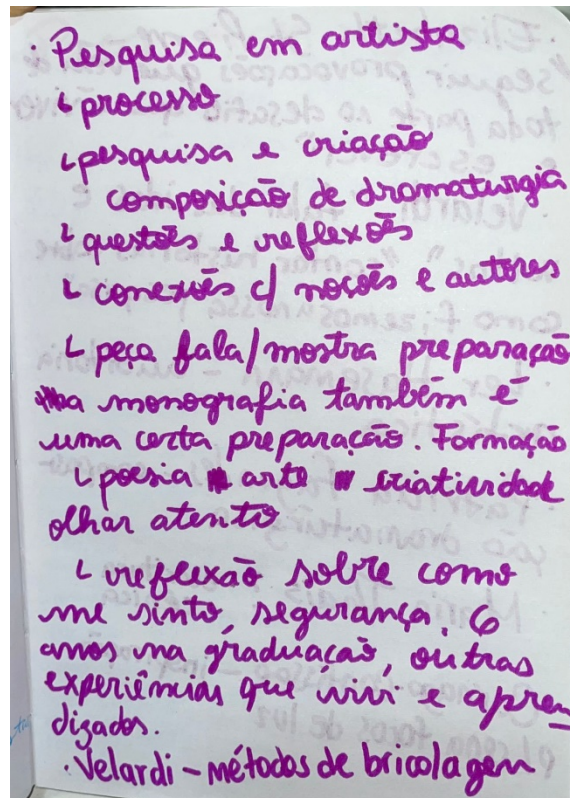 · Pesquisa em artista
↳ processo
↳ pesquisa e criação
composição de dramaturgia
↳ questões e reflexões
↳ conexões c/ noções e autores
↳ peça fala/mostra preparação
a monografia também é
uma certa preparação. Formação
↳ poesia arte criatividade
olhar atento
↳ reflexão sobre como
me sinto, segurança, 6
anos na graduação, outras
experiências que vivi e apren
dizados.
· Velardi – métodos de bricolagem